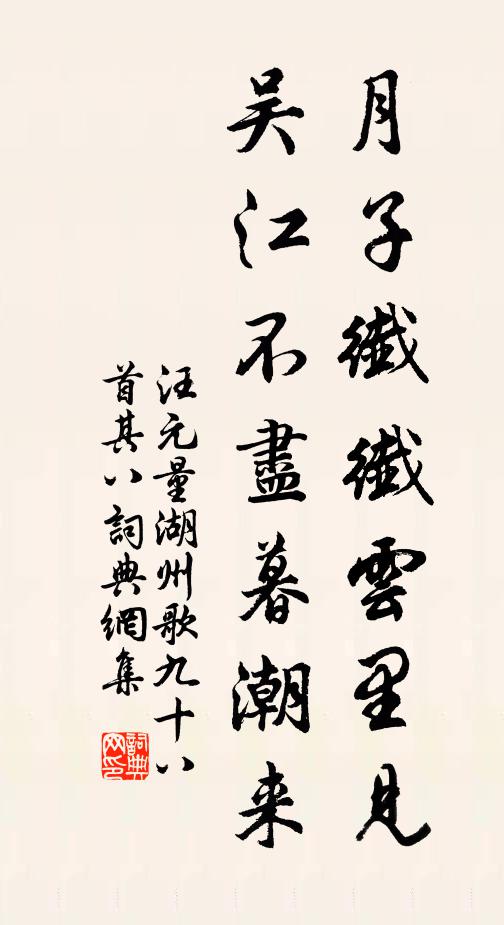 月子纖纖雲里見
吴江不盡暮潮来
汪元量湖州歌九十八
首其八詞典網集
詞典网印